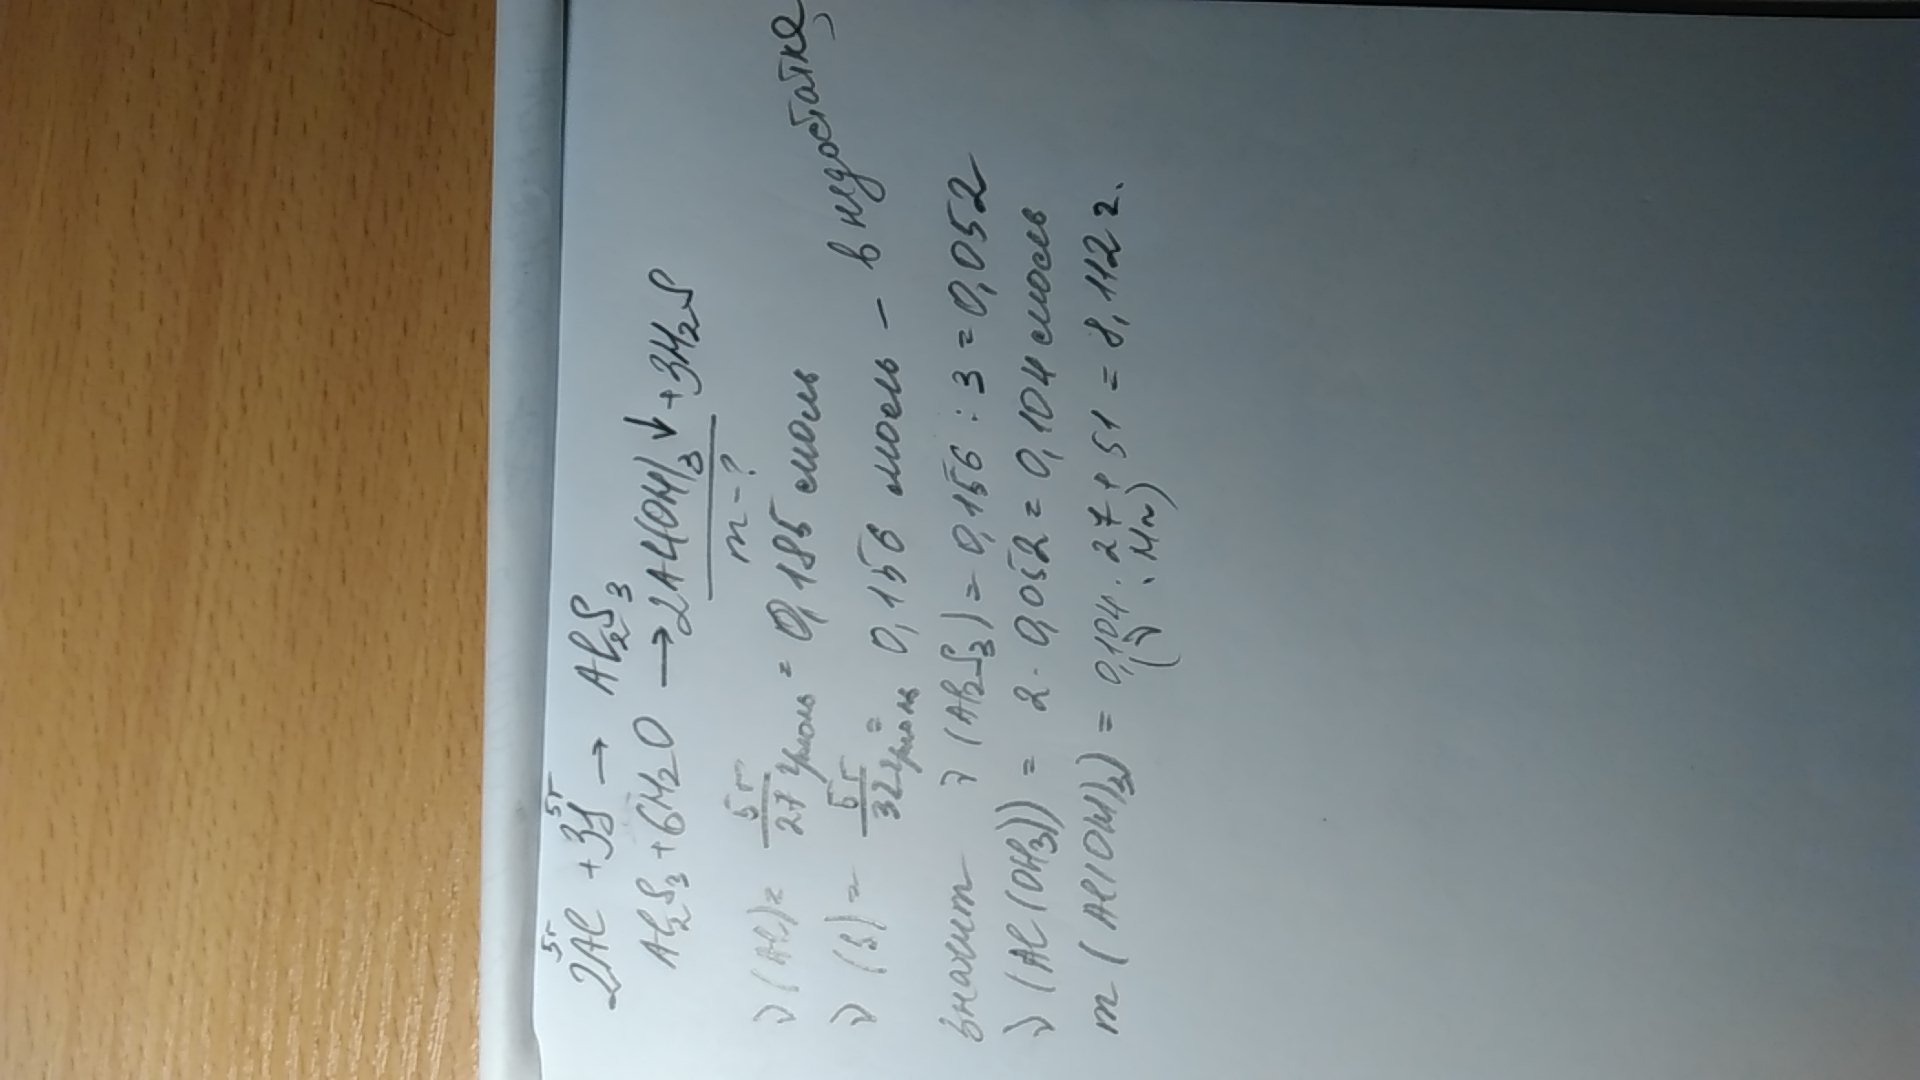 5г 5г
2Al + 3S → Al2S3
Al2S3 + 6H2O → 2Al(OH)3↓ + 3H2S
m - ?
ν (Al) = 5г / 27 г/моль = 0,185 моль
ν (S) = 5г / 32 г/моль = 0,156 моль – в недостатке,
значит ν (Al2S3) = 0,156 : 3 = 0,052
ν (Al(OH3)) = 2 · 0,052 = 0,104 моль
m (Al(OH)3) = 0,104 · 27 + 51 = 8,112 г.
(ν · Mr)